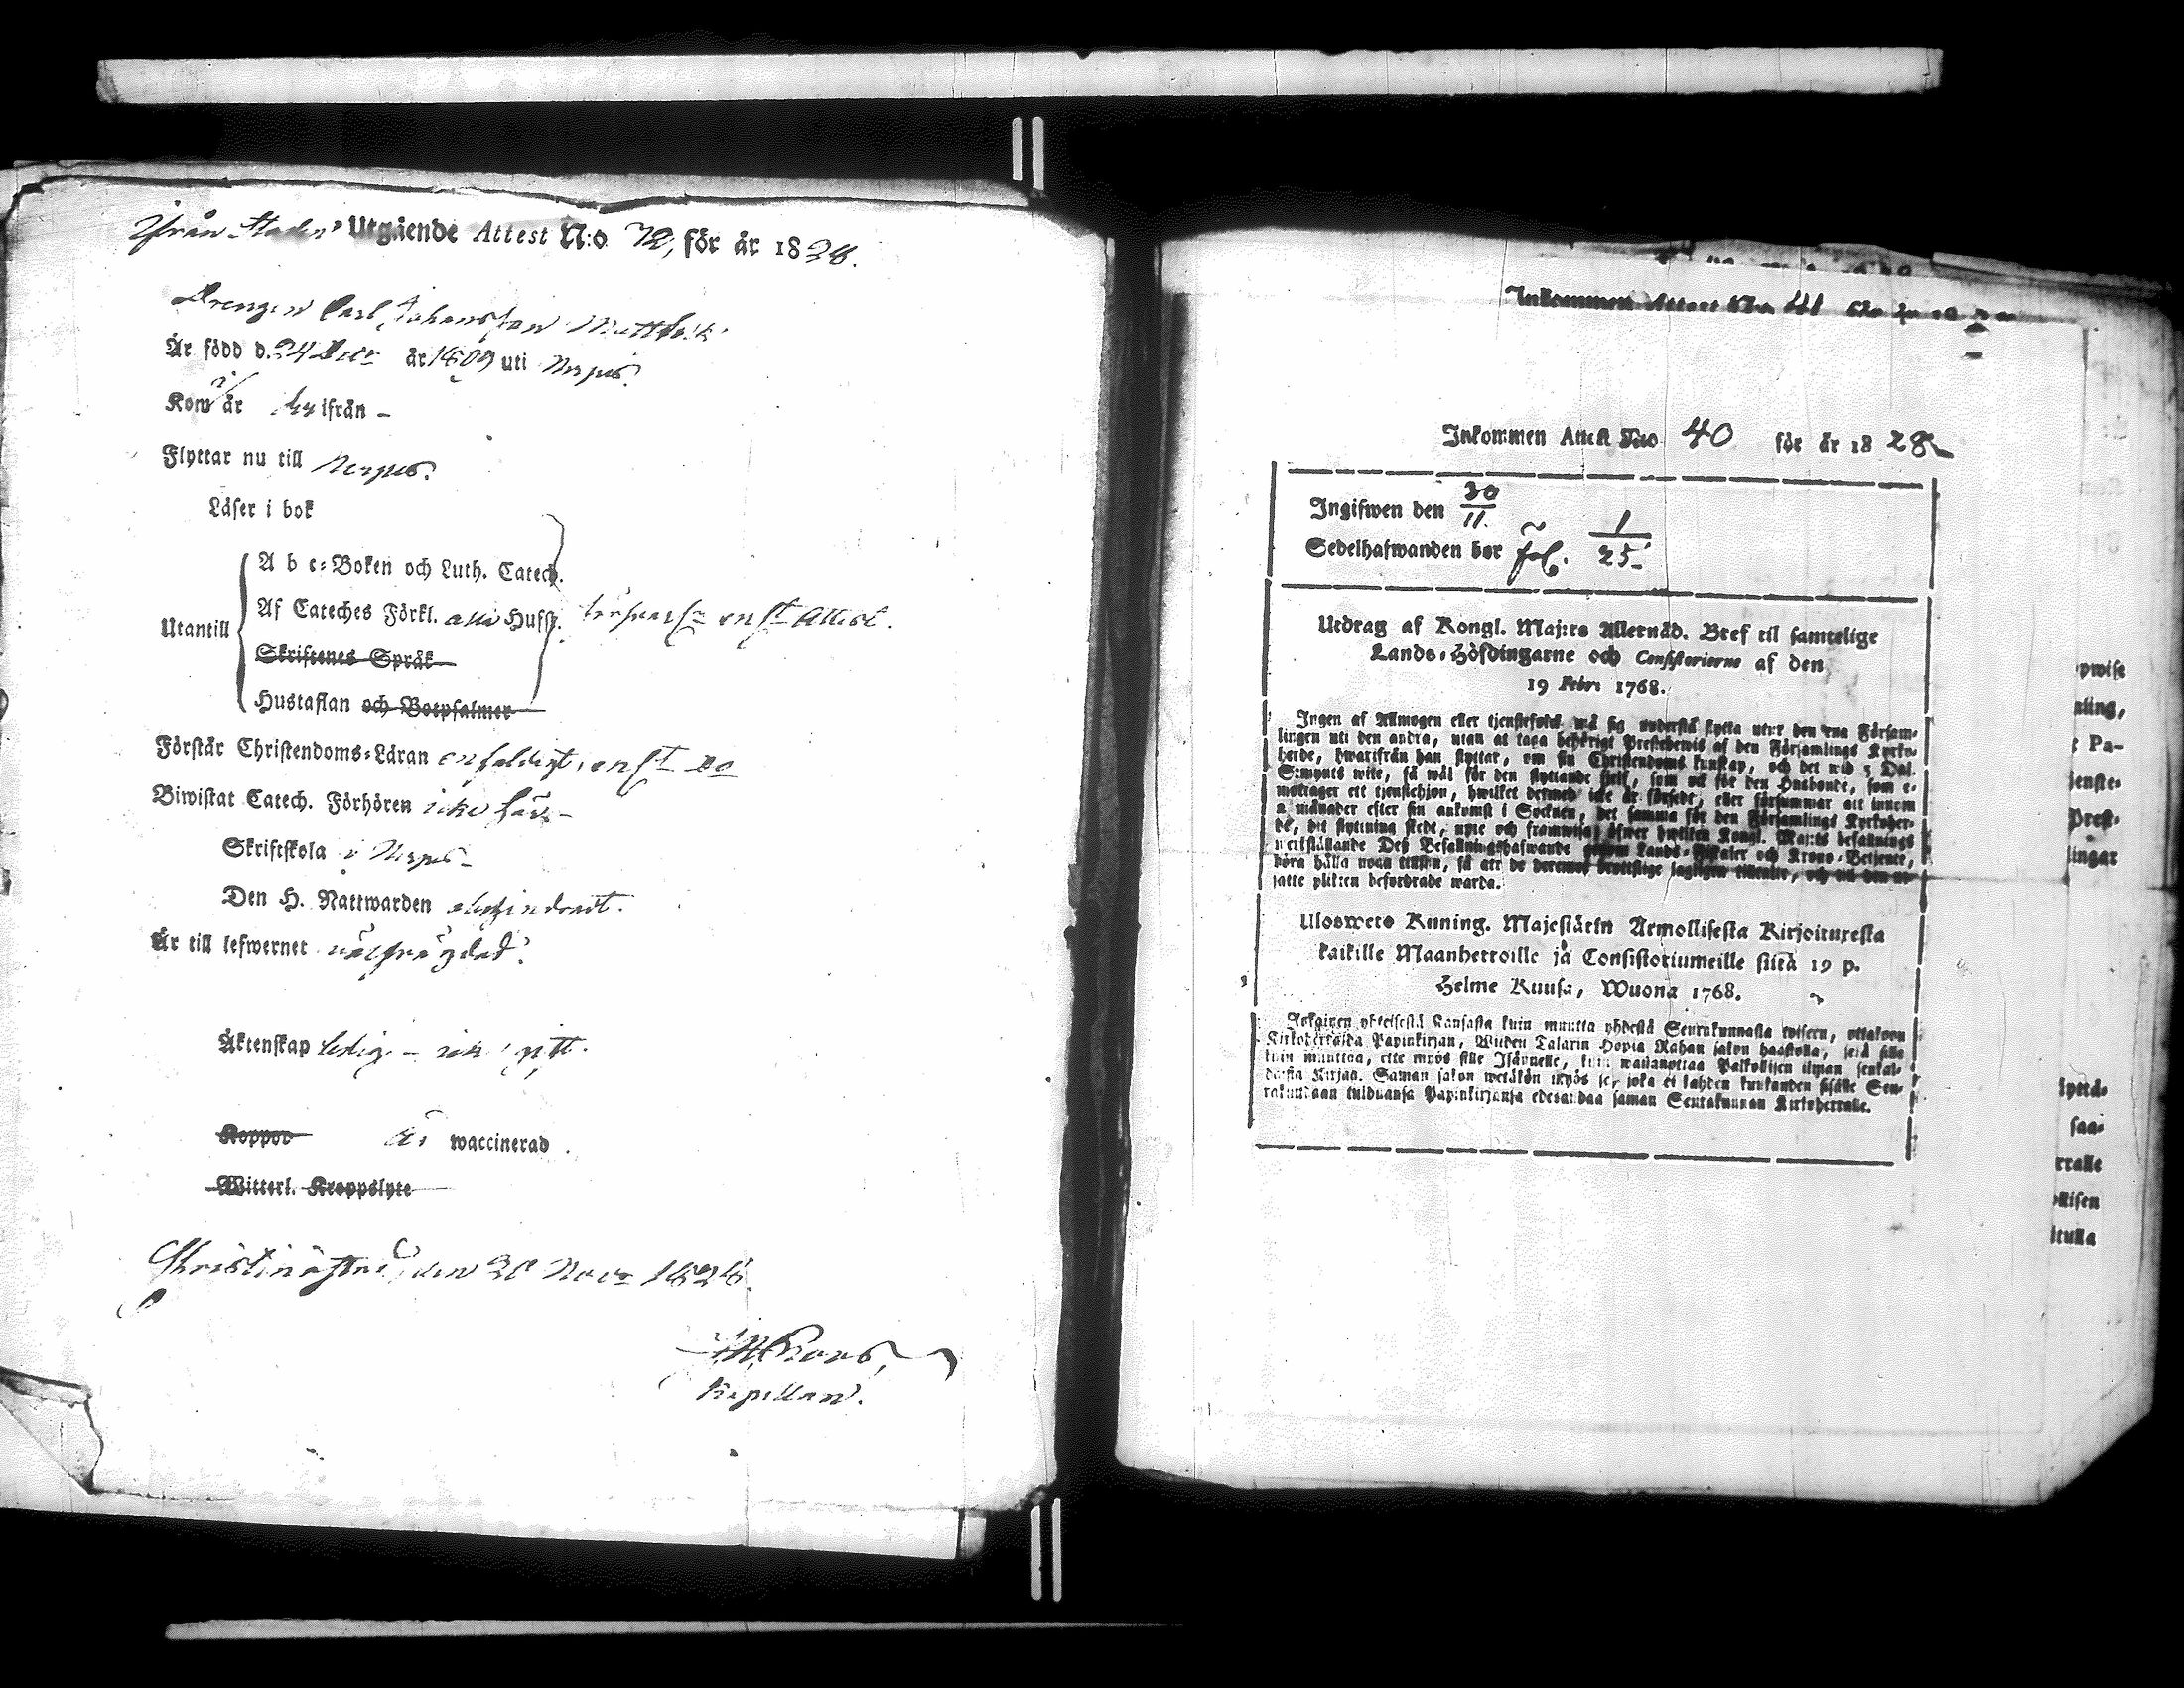 ifrån Staden Utgående Attest N:o 72, för år 1828.
Drengen Carl Johansson
Är född d. 24 Decr år 1809 uti Nerpes.
Kom år ifrån –
Flyttar nu till Nerpes.
Läser i bok
A b c-Boken och Luth. Catech.
Af Cateches Förkl. Hufst.
Utantill
Skriftenes Språk
Hustaflan och Botpsalmer
Förstår Christendoms-Läran enfaldigt, enst
Biwistat Catech. Förhören icke här –
Skriftskola i Nerpes –
Den H. Nattwarden obehindradt.
Är till lefwernet välfrägdad.
Äktenskap ledig – icke gift.
Koppor är waccinerad.
Witterl. Kroppslyte
Christinæstad, den Novr 1828.
Kapellan.
Inkommen Attest N:o 41 för år
Inkommen Attest N:o 40 för år 1828
Ingifwen den 30/11.
Sedelhafwanden bor fol. 1/25
Utdrag af Kongl. Maj:ts Allernåd. Bref til samtelige
Lands-Höfdingarne och Consistorierne af den
19 Febr: 1768.
Ingen af Allmogen eller tjenstefolck må sig understå flytta utur den ena Församlingen
uti den andra, utan at taga behörigt Prestebewis af den Församlings Kyrkoherde,
hwarifrån han flyttar, om sin Christendoms kunskap, och det wid 5 Dal.
S:mynts wite, så wäl för den flyttande sjelf, som ock för den Husbonde, som emottager
ett tjenstehjon, hwilket dermed icke är försedt, eller försummar att innom
2 månader efter sin ankomst i Socknen, det samma för den Församlings Kyrkoherde,
dit flyttning skedt, upte och framwisa; öfwer hwilken Kongl. Maj:ts befallnings
werkställande Deß Befallningshafwande genom Lands-Fiskaler och Krono-Betjente,
böra hålla noga tillsyn, så att de deremot
satte plikten befordrade warda.
Ulosweto Kuning. Majestätin Armollisesta Kirjoituxesta
kaikille Maanherroille ja Consistoriumeille siitä 19 p.
Helme Kuusa, Wuona 1768.
yhteisestä Kansasta kuin muutta yhdestä Seurakunnasta toiseen, ottakoon
Kirkoherralda Papinkirjan, Wiiden Talarin Hopia Rahan sakon haastolla, sekä sille
kuin muuttaa, ette myös sille Isännelle, kuin wastanottaa Palkollisen ilman senkaldaista
Kirjaa. Saman sakon wetäkön myös se, joka ei kahden kuukauden sisälle Seurakundaan
tulduansa Papinkirjansa edesandaa saman Seurakunnan Kirkoherralle.